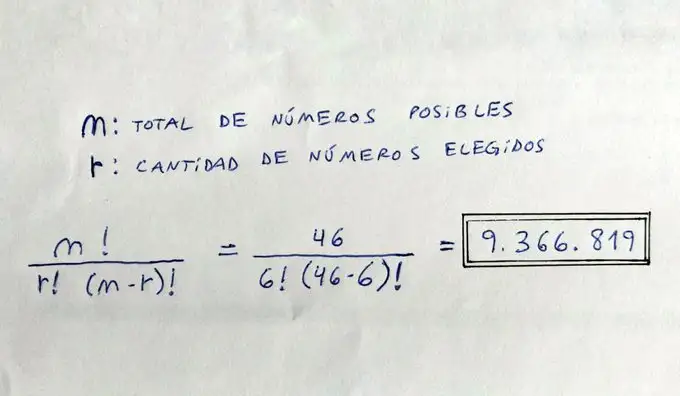 m: TOTAL DE NÚMEROS POSIBLES
r: CANTIDAD DE NÚMEROS ELEGIDOS
m! / r! (m-r)! = 46 / 6! (46-6)! = 9.366.819